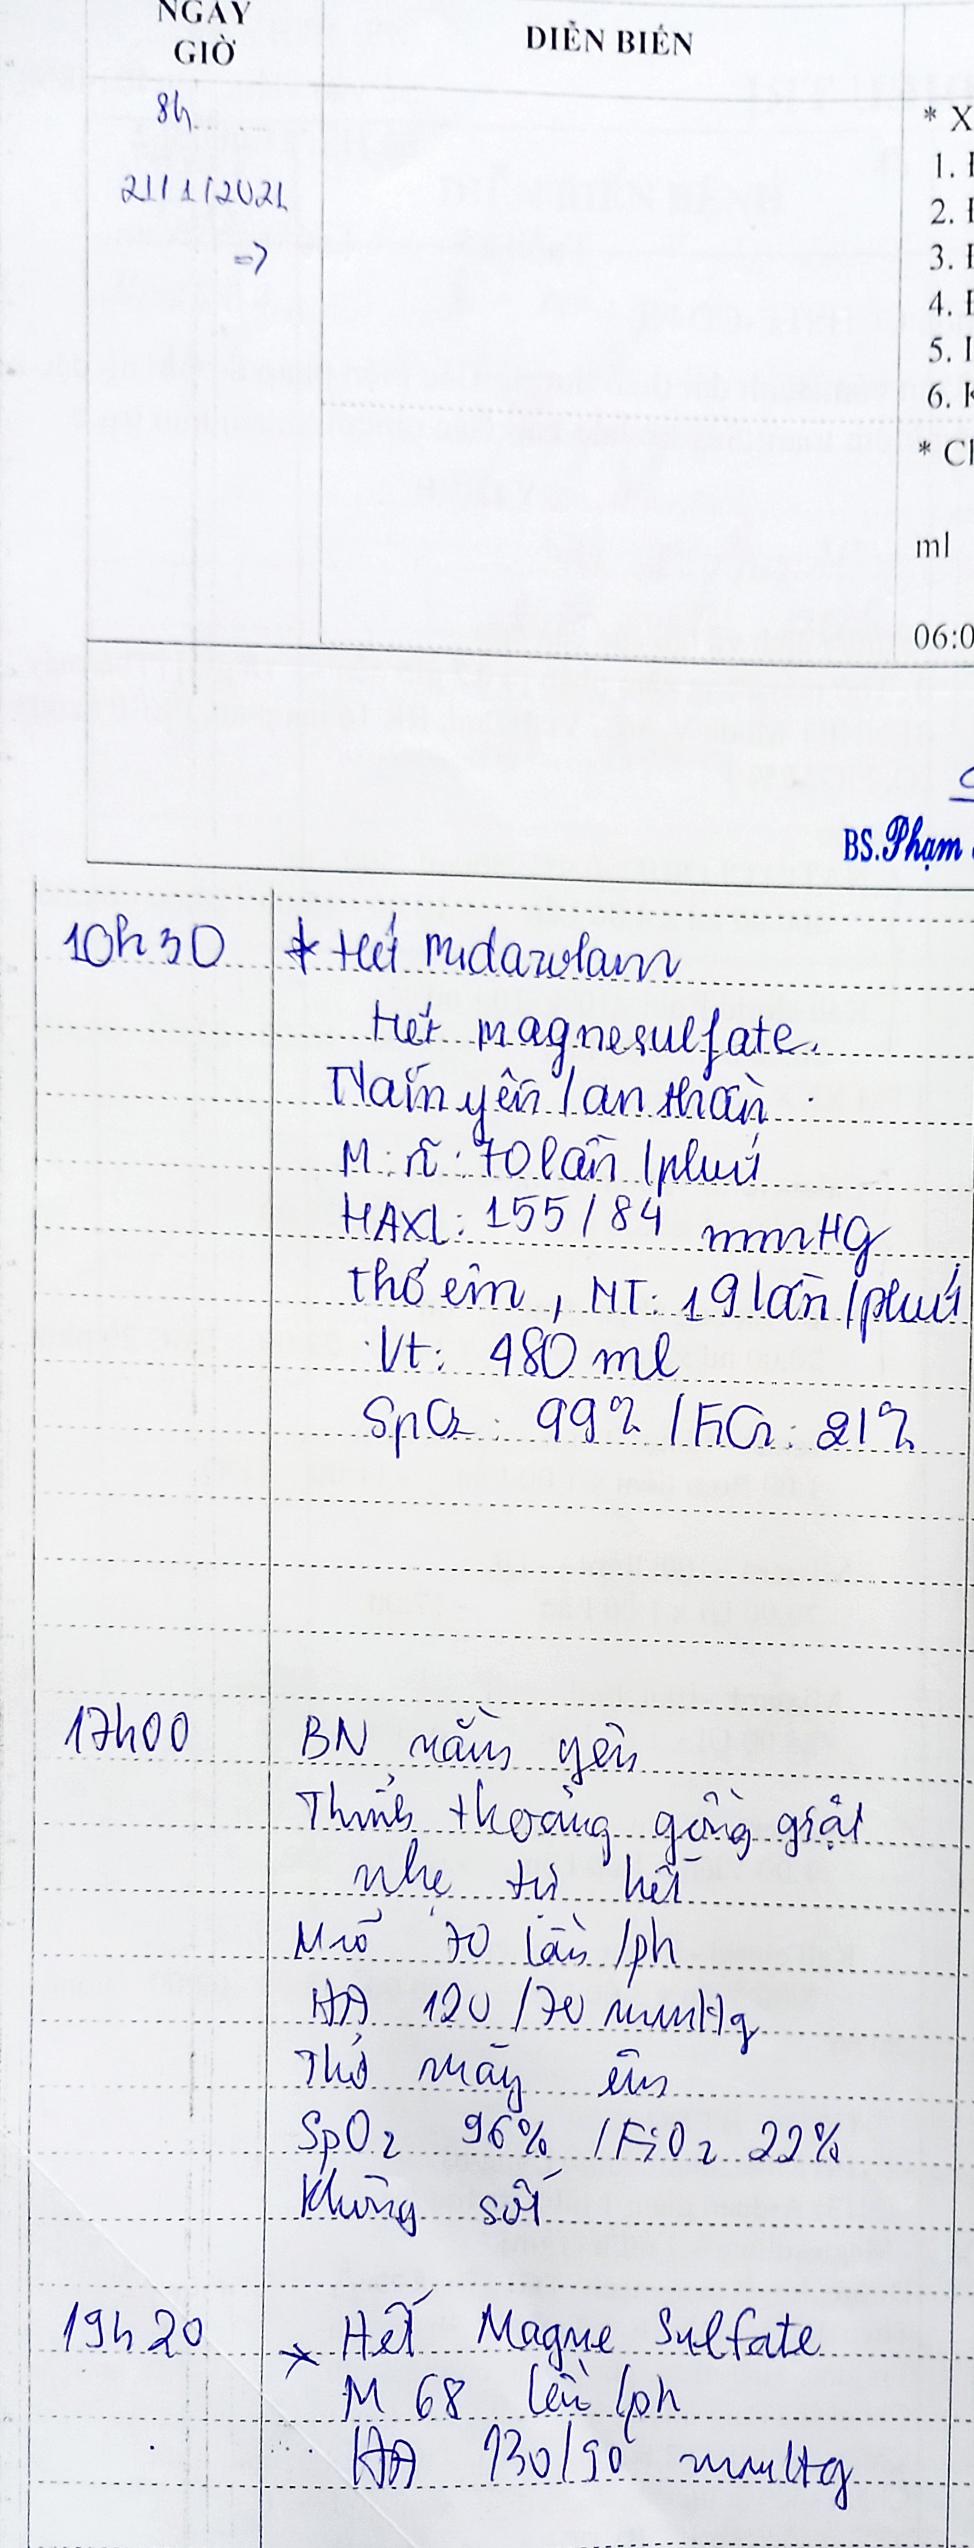 NGÀY
GIỜ
DIỄN BIẾN
8h
21/1/2021
=>
* X
1.
2.
3.
4.
5.
6.
* Ch
ml
06:0
BS. Phạm
10h30
* Hết Midazolam
Hết magnesulfate.
Nằm yên / an thần
M: rõ: 70 lần /phút
HAXL: 155/84 mmHg
thở êm, NT: 19 lần /phút
Vt: 480 ml
SpO2: 99% / FiO2: 21%
17h00
BN nằm yên
Thỉnh thoảng gồng giật
nhẹ tự hết
M rõ 70 lần /ph
HA 120 /70 mmHg
Thở máy êm
SpO2 96% / FiO2 22%
Không sốt
19h20
* Hết Magne Sulfate
M 68 lần /ph
HA 130/90 mmHg